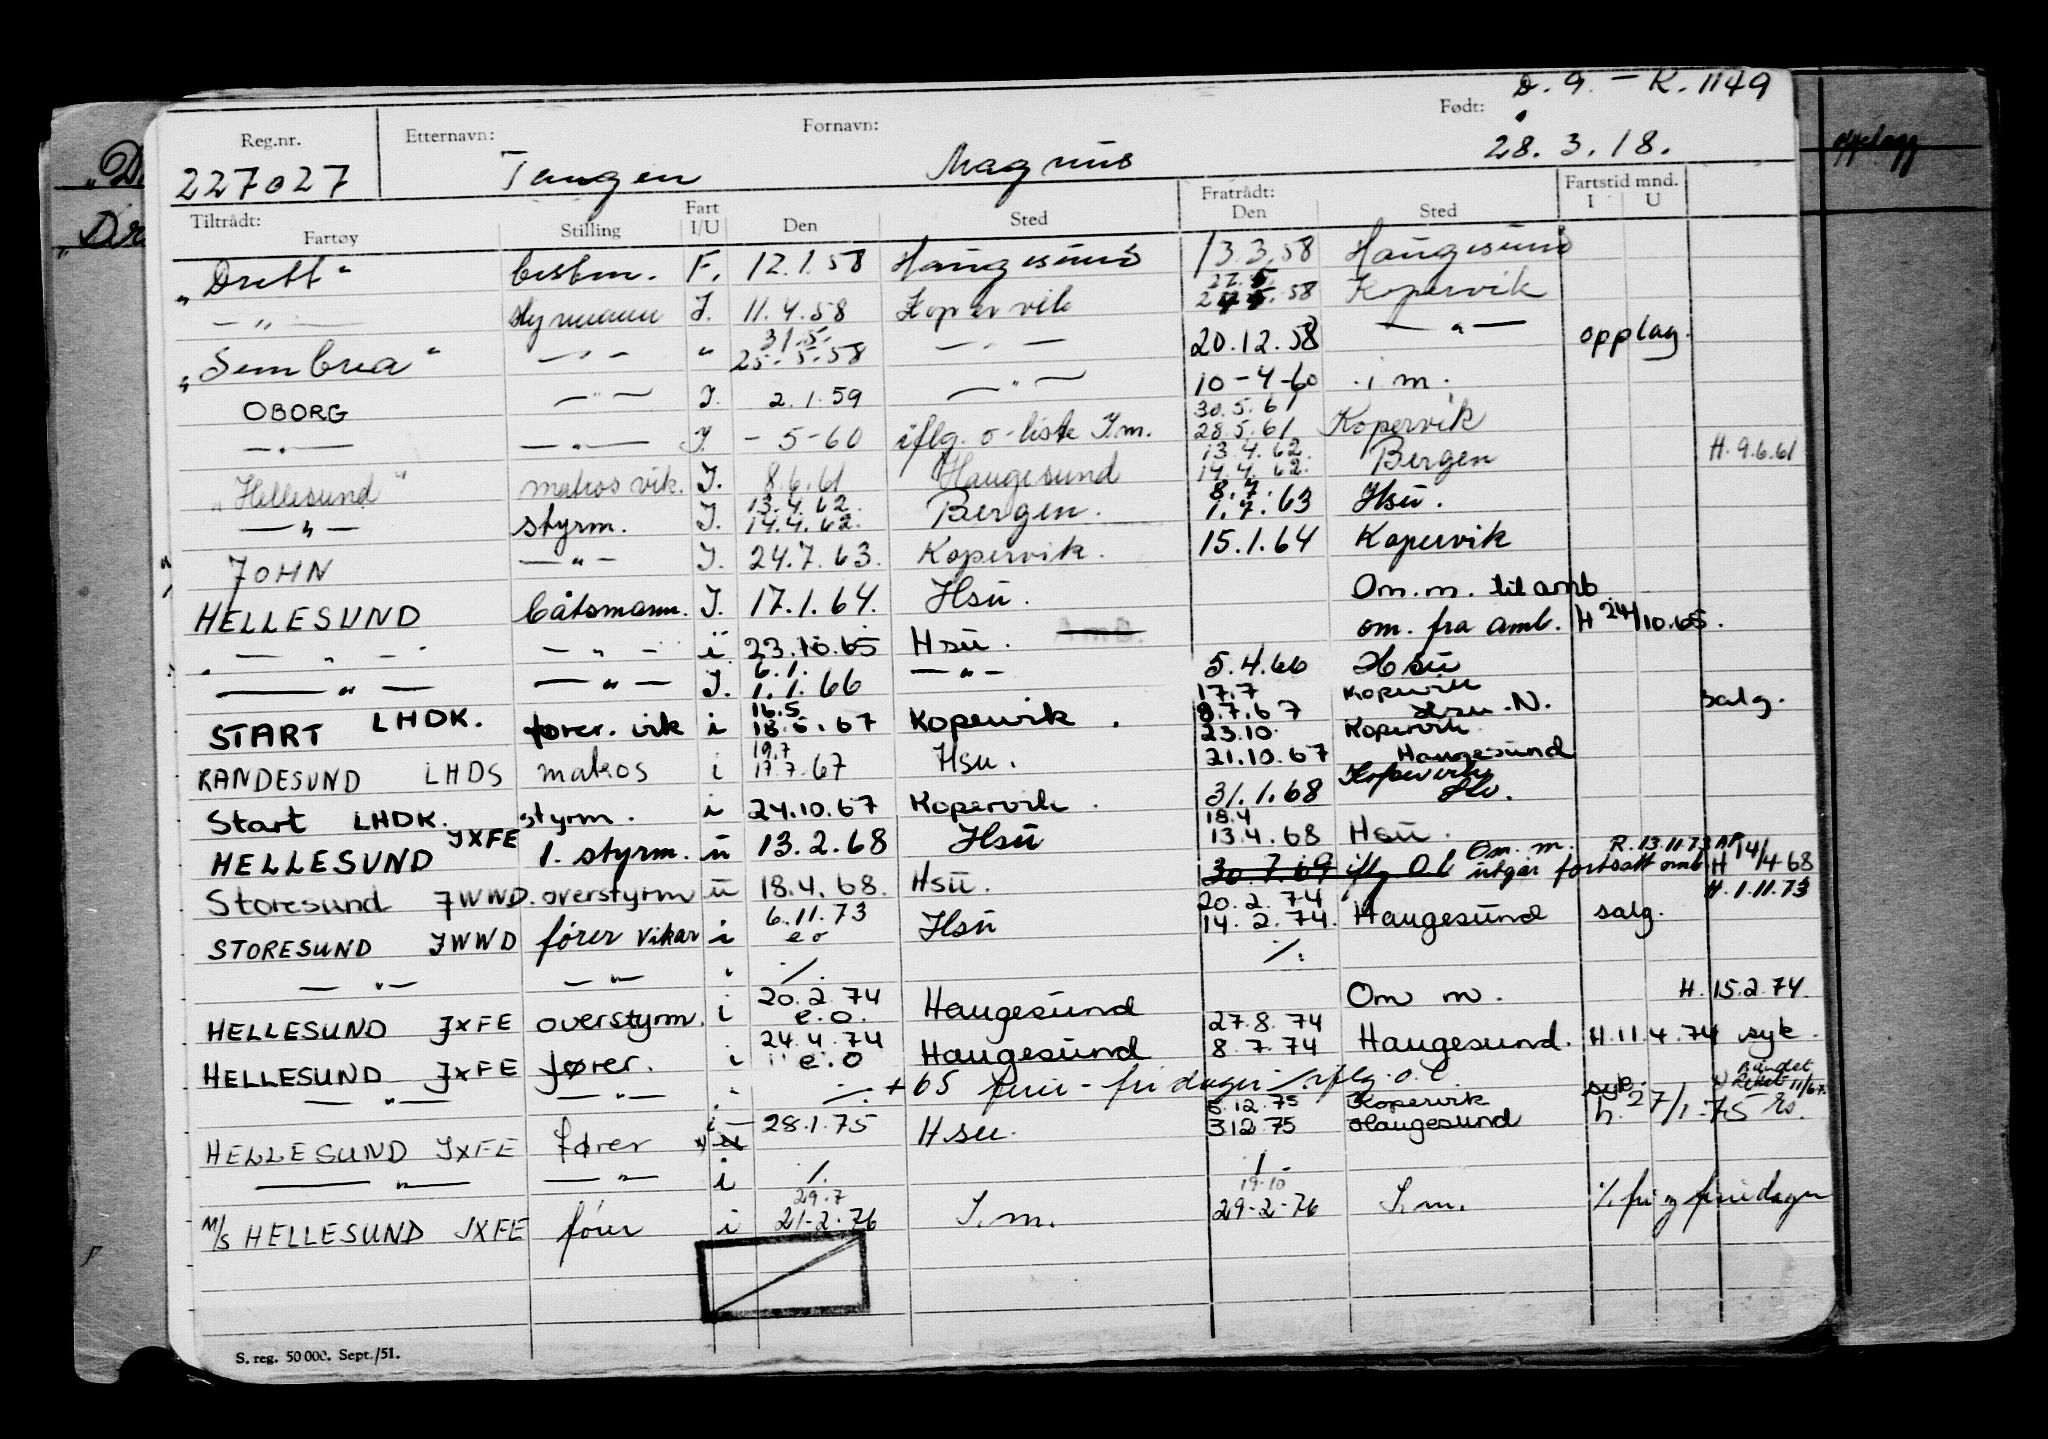 D. 9. - R. 1149
Reg.nr. Etternavn: Fornavn: Født:
227027 Tangen Magnus 28.3.18.
Tiltrådt: Fart Fratrådt: Fartstid mnd.
Fartøy Stilling I/U Den Sted Den Sted I U
"Drett" bestm. F. 12.1.58 Haugesund 13.3.58 Haugesund
27.5.
— " — styrmann I. 11.4.58 Kopervik 58 Kopervik
31.5.
"Sembria" — " — " 25.5.58 — " — 20.12.58 — " — opplag.
OBORG — " — I. 2.1.59 — " — 10-4-60 i m.
30.5.61
— " — — " — I. - 5-60 iflg. o-liste I.m. 28.5.61 Kopervik
13.4.62.
"Hellesund" matros vik. I. 8.6.61 Haugesund 14.4.62. Bergen H. 9.6.61
13.4.62. 8.7.
— " — styrm. I. 14.4.62. Bergen. 1.7.63 Hsu.
JOHN — " — I. 24.7.63. Kopervik. 15.1.64 Kopervik
HELLESUND båtsmann. I. 17.1.64. Hsu. Om.m. til amb
— " — — " — i 23.10.65 Hsu. om. fra amb. H 24/10.65.
6.1.
— " — — " — I. 1.1.66 — " — 5.4.66 Hsu
16.5 17.7 Kopervik
START LHDK. fører. vik i 18.5.67 Kopervik. 8.7.67 Hsu. N. salg.
19.7 23.10. Kopervik
RANDESUND LHDS matros i 17.7.67 Hsu. 21.10.67 Haugesund
Start LHDK. styrm. i 24.10.67 Kopervik. 31.1.68 Kopervik
18.4
HELLESUND JXFE 1. styrm. u 13.2.68 Hsu 13.4.68 Hsu.
Om. m. R. 13.11.73 AP
Storesund JWWD. overstyrm u 18.4.68. Hsu. 30.7.69 iflg O.l utgår fortsatt omb H 14/4 68
6.11.73 20.2.74 H. 1.11.73
STORESUND JWWD fører vikar i e o Hsu 14.2.74. Haugesund salg.
— " — — " — " ./. ./.
20.2.74
HELLESUND JXFE overstyrm. i e.o. Haugesund Om m. H. 15.2.74.
24.4.74 27.8.74
HELLESUND JXFE fører. i e.o Haugesund 8.7.74 Haugesund. H. 11.4.74 syk.
— " — — " — " ./. +65 ferie-fridager ./. iflg. o.l. syk.
5.12.75 Kopervik 11/67.
HELLESUND JXFE fører i 28.1.75 Hsu. 3.12.75 Haugesund h. 27/1-75
— " — — " — i ./. 1.
29.7 19.10
M/S HELLESUND JXFE fører i 21-2-76 I.m. 29-2-76 I.m. ./. fri og feriedager
S. reg. 50 000. Sept./51.
opplagg